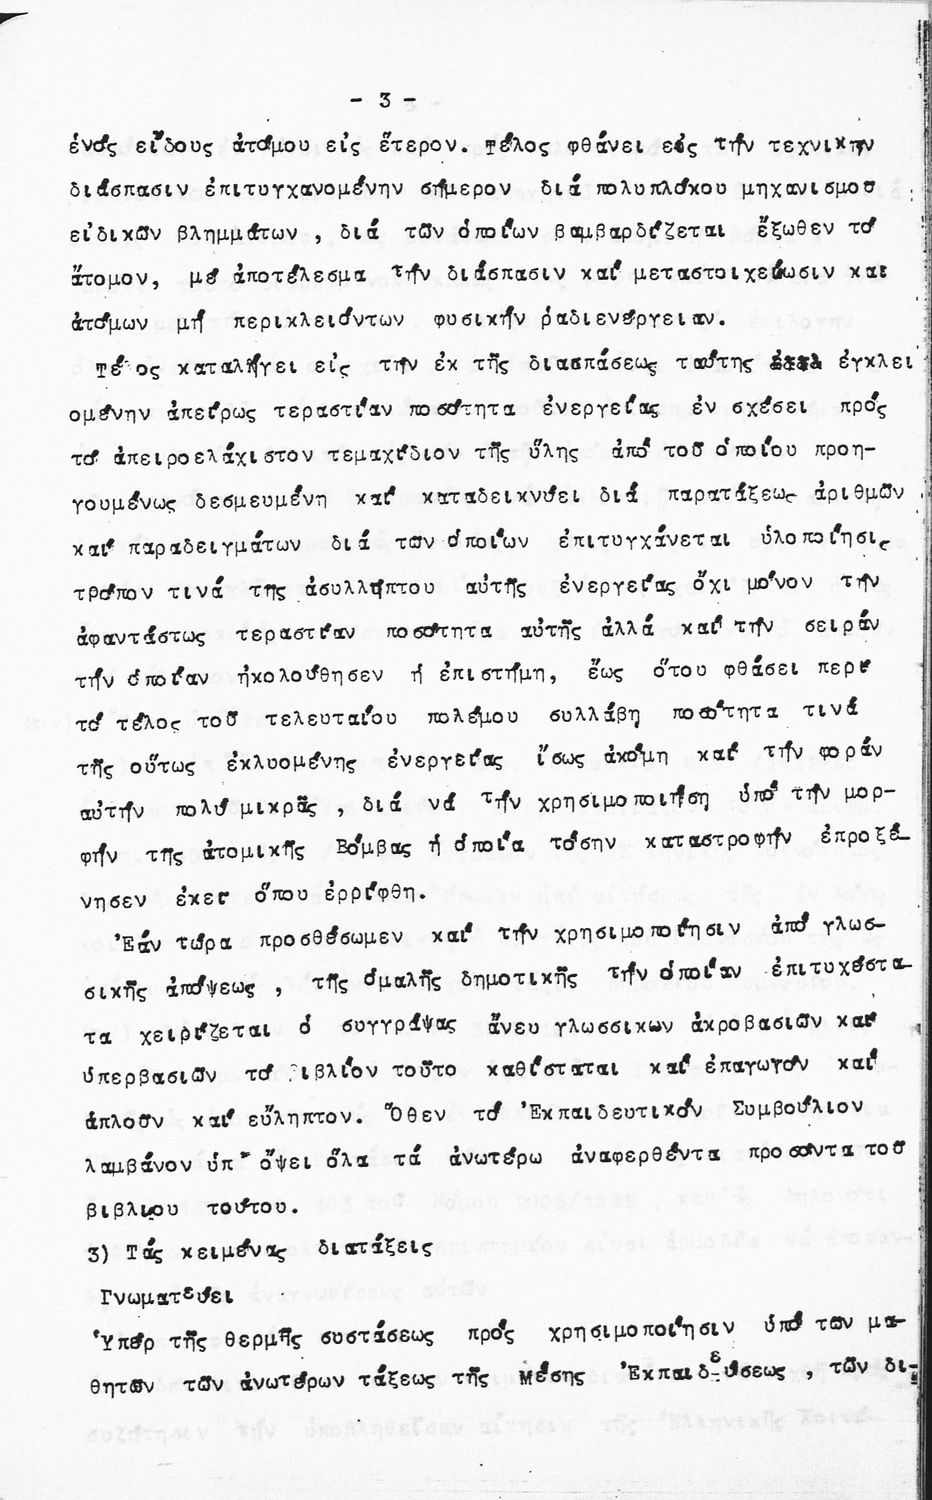 - 3 -
ἑνός εἴδους ἀτόμου εἰς ἕτερον. Τέλος φθάνει εἰς τήν τεχνικην
διάσπασιν ἐπιτυγχανομένην σήμερον διά πολυπλόκου μηχανισμοῦ
εἰδικῶν βλημμάτων , διά τῶν ὁποίων βαμβαρδίζεται ἔξωθεν τό
ἄτομον, μέ ἀποτέλεσμα τήν διάσπασιν καί μεταστοιχείωσιν και
ἀτόμων μή περικλειόντων φυσικήν ραδιενέργειαν.
Τέ ος καταλήγει εἰς την ἐκ τῆς διασπάσεως ταύτης ἐγκλει
ομένην ἀπείρως τεραστίαν ποσότητα ἐνεργείας ἐν σχέσει πρός
τό ἀπειροελάχιστον τεμαχίδιον τῆς ὕλης ἀπό τοῦ ὁποίου προη-
γουμένως δεσμευμένη καί καταδεικνύει διά παρατάξεως ἀριθμῶν
καί παραδειγμάτων διά των ὁποίων ἐπιτυγχάνεται ὑλοποίησις
τρόπον τινά της ἀσυλλήπτου αὐτῆς ἐνεργείας ὄχι μόνον τήν
ἀφαντάστως τεραστίαν ποσότητα αὐτῆς ἀλλά καί τήν σειράν
τήν ὁποίαν ἠκολούθησεν ἡ ἐπιστήμη, ἕως ὅτου φθάσει περί
τό τέλος τοῦ τελευταίου πολέμου συλλάβη ποσότητα τινά
τῆς οὕτως ἐκλυομένης ἐνεργείας ἴσως ἀκόμη καί τήν φοράν
αὐτήν πολύ μικρᾶς , διά νά τήν χρησιμοποιήση ὑπό τήν μορ-
φήν της ἀτομικῆς Βόμβας ἡ ὁποία τόσην καταστροφήν ἐπροξέ-
νησεν ἐκει ὅπου ἐρρίφθη.
Ἐάν τώρα προσθέσωμεν καί τήν χρησιμοποίησιν ἀπό γλωσ-
σικῆς ἀπόψεως , τῆς ὁμαλῆς δημοτικῆς τήν ὁποίαν ἐπιτυχέστα-
τα χειρίζεται ὁ συγγράψας ἄνευ γλωσσικων ἀκροβασιῶν καί
ὑπερβασιῶν τό ιβλίον τοῦτο καθίσταται καί ἐπαγωγόν καί
ἁπλοῦν καί εὔληπτον. Ὅθεν τό Ἐκπαιδευτικόν Συμβούλιον
λαμβάνον ὑπ' ὄψει ὅλα τά ἀνωτέρω ἀναφερθέντα προσόντα τοῦ
βιβλιου τούτου.
3) Τάς κειμένας διατάξεις
Γνωματεύει
Ὑπέρ τῆς θερμῆς συστάσεως πρός χρησιμοποίησιν ὑπό των μα-
θητῶν τῶν ἀνωτέρων τάξεως τῆς Μέσης Ἐκπαιδεύσεως , τῶν δι-